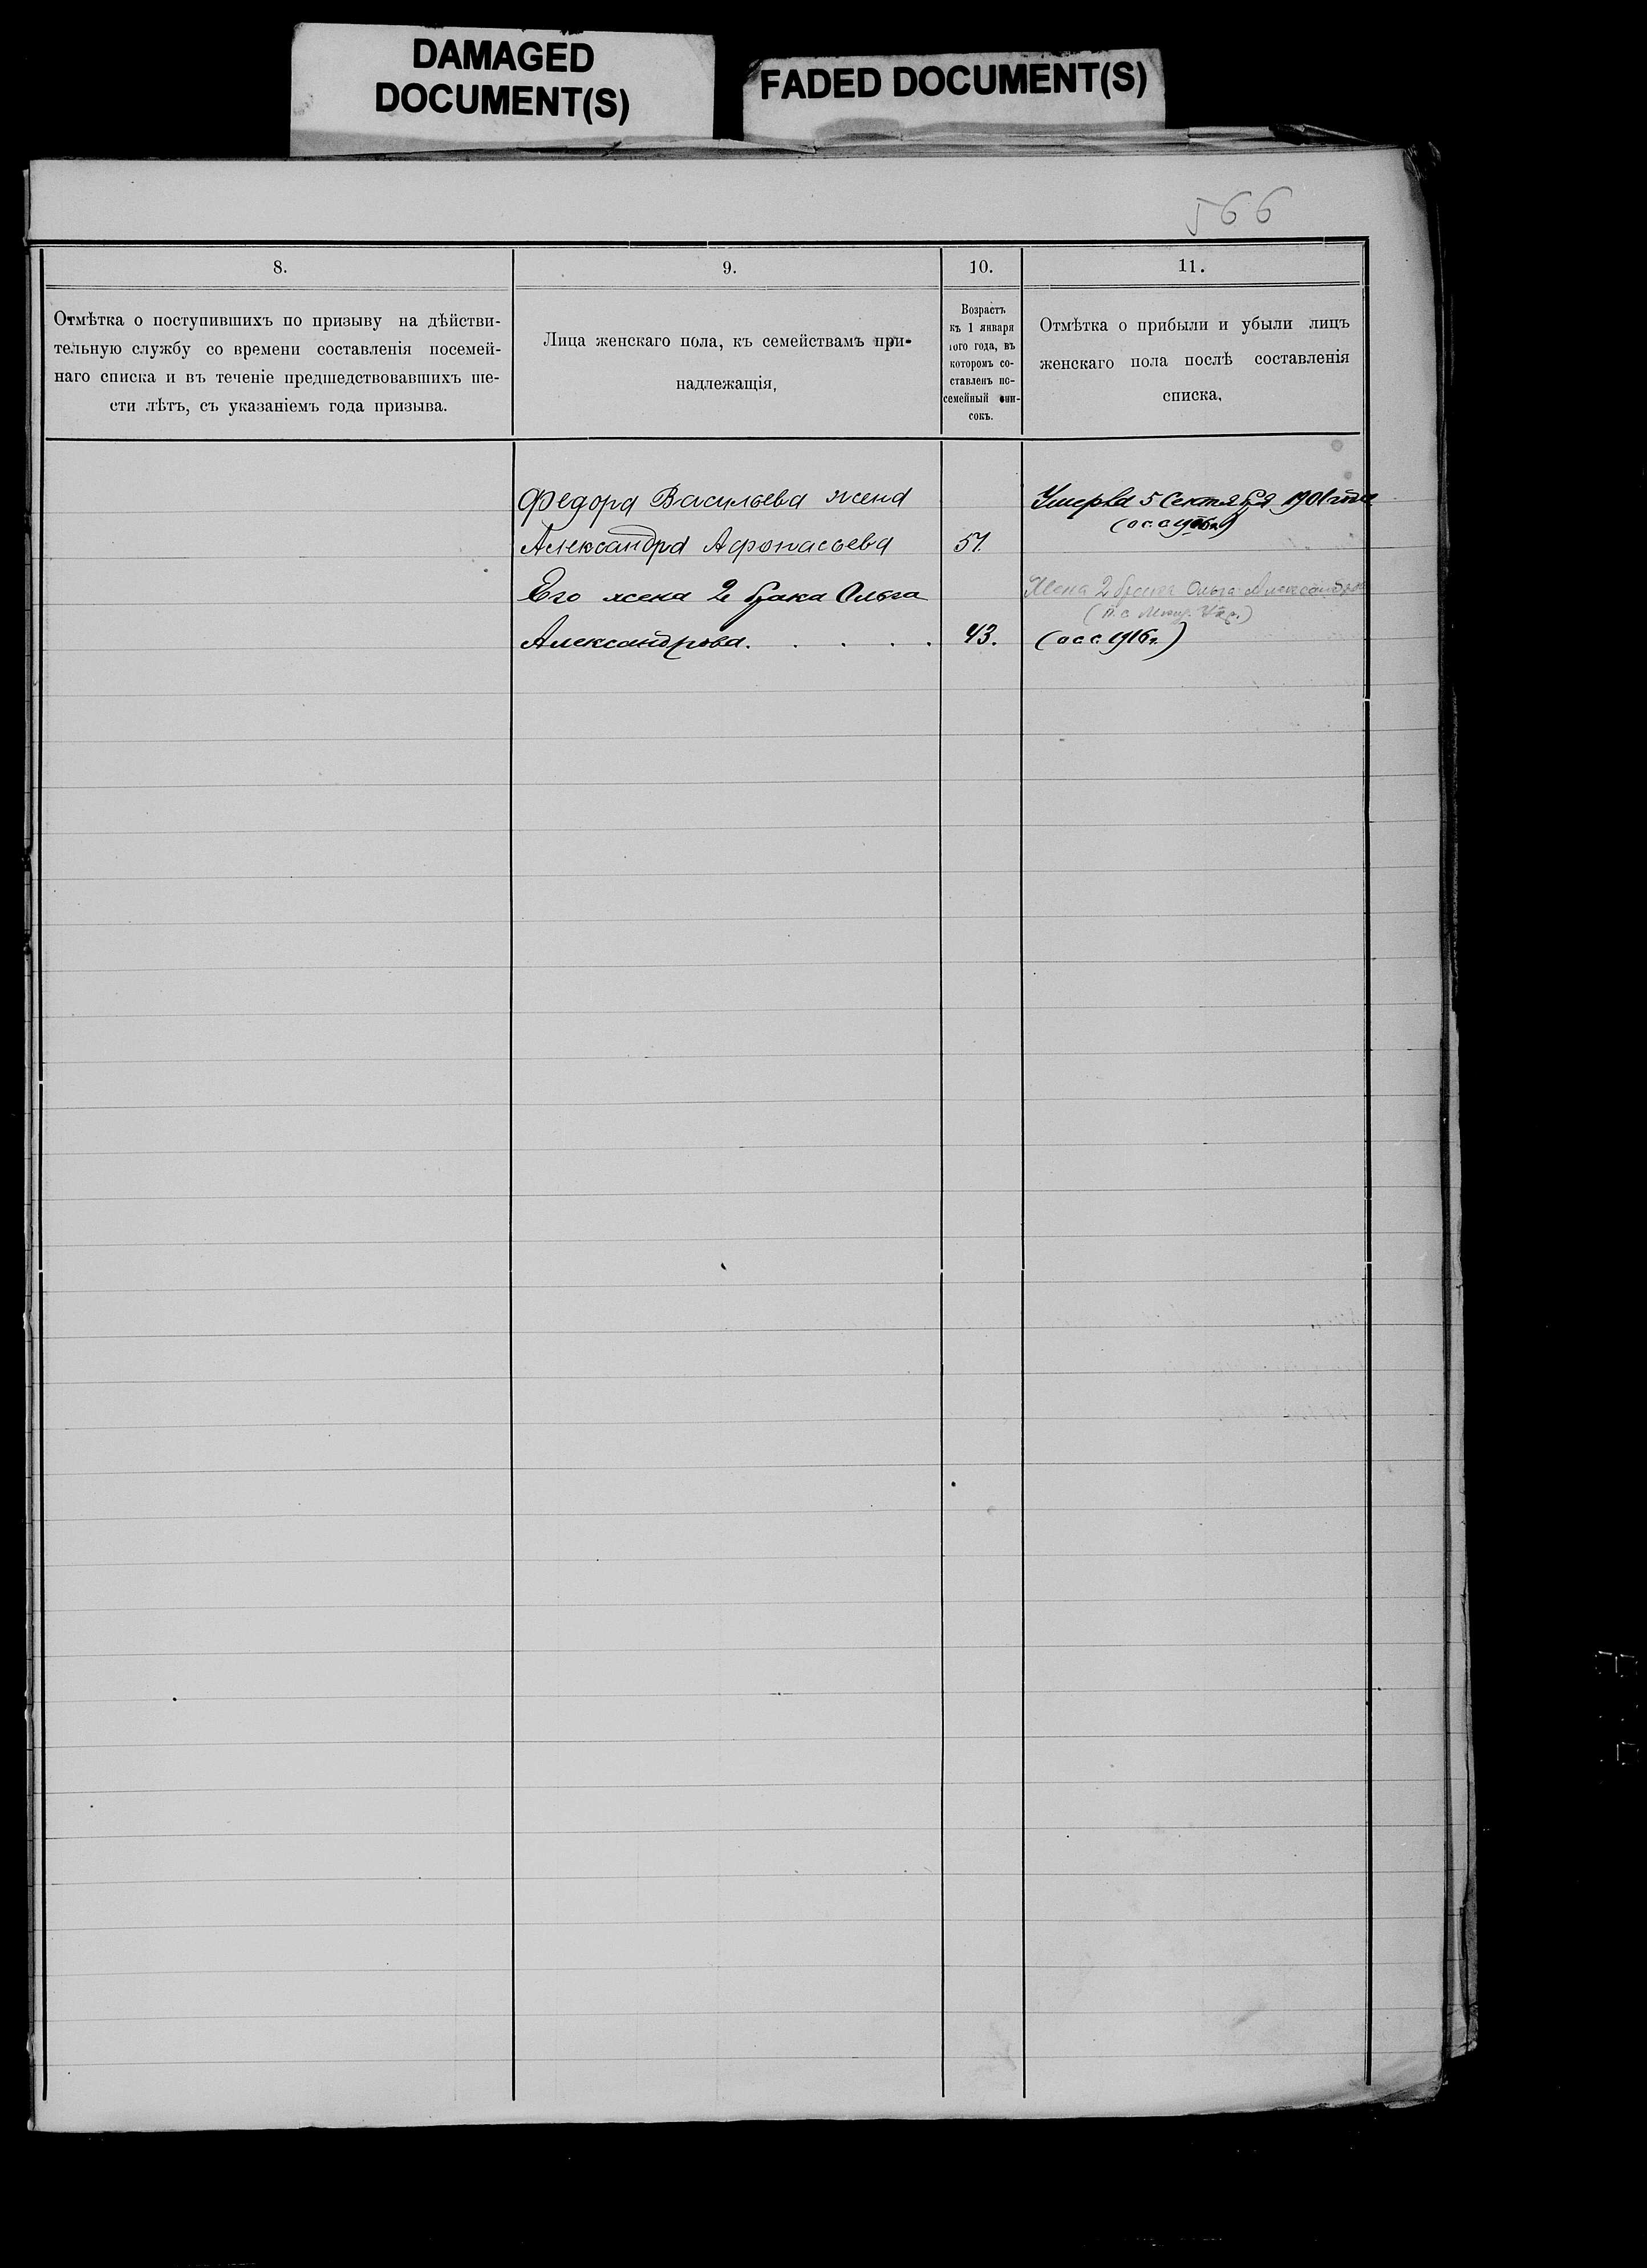 DAMAGED
DOCUMENT(S)
FADED DOCUMENT(S)
566
8.
9.
10.
11.
Отмѣтка о поступившихъ по призыву на дѣйстви-
тельную службу со времени составленія посемей-
наго списка и въ теченіе предшедствовавшихъ ше-
сти лѣтъ, съ указаніемъ года призыва.
Лица женскаго пола, къ семействамъ при-
надлежащія,
Возрастъ
къ 1 января
того года, въ
которомъ со-
ставленъ по-
семейный спи-
сокъ.
Отмѣтка о прибыли и убыли лицъ
женскаго пола послѣ составленія
списка,
Федора Васильева жена
Умерла 5 Сентября 1901 года
Александра Афонасьева
51.
Его жена 2 брака Ольга
Жена 2 брака Ольга Александрова
Александрова. . . . .
43.
(осс 1916 г.)